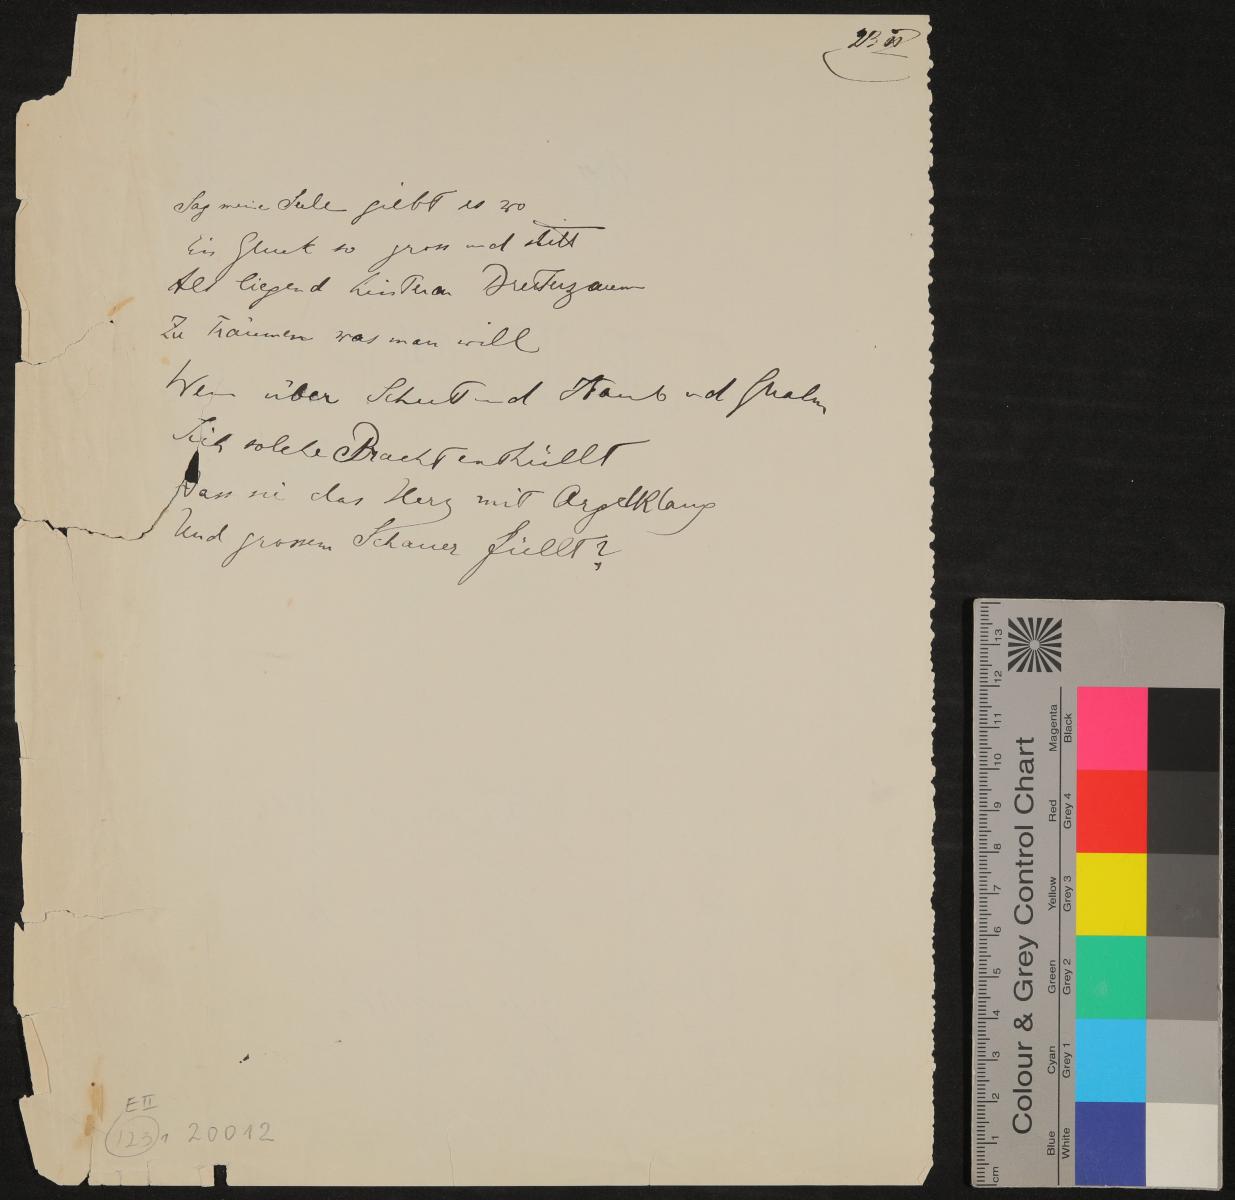 23 IV
Sag meine Seele giebt es wo
Ein Gluck so gross und still
Als liegend hinterm Bretterzaun
Zu träumen was man will
Wenn über Schutt und Staub und Qualm
Sich solche Pracht enthüllt
Dass sie das Herz mit Orgelklang
Und grossem Schauer füllt?
E II
123 1 20012
Colour & Grey Control Chart
Blue Cyan Green Yellow Red Magenta
White Grey 1 Grey 2 Grey 3 Grey 4 Black
cm 1 2 3 4 5 6 7 8 9 10 11 12 13